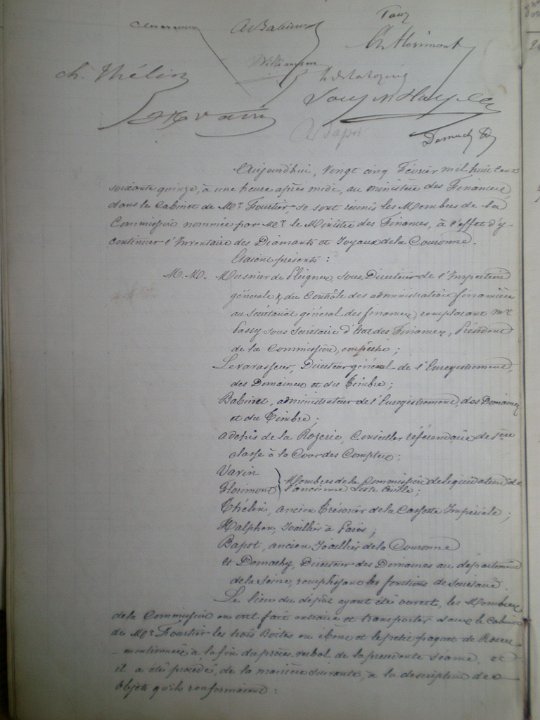 A Babinet
Ch. Thélin
Aujourdhui, Vingt cinq Février mil huit cent
soixante quinze, à une heure après midi, au ministère des Finances
dans le Cabinet de Mr. se sont réunis les Membres de la
Commission nommée par Mr. le Ministre des Finances, à l'effet d'y
continuer l'Inventaire des Diamants et Joyaux de la Couronne.
Étaient présents :
M.M. sous Directeur de l'Inspection
générale & du Contrôle des administrations financières
au Secrétariat général des finances, remplaçant Mr.
Passy sous Secrétaire d'État des Finances, Président
de la Commission, empêché ;
Levavasseur, Directeur général de l'Enregistrement
des Domaines et du Timbre ;
Babinet, administrateur de l'Enregistrement, des Domaines
et du Timbre ;
de la Rozerie, Conseiller référendaire de 1ère
classe à la Cour des Comptes ;
Varin
Membres de la Commission de liquidation de
l'ancienne Liste Civile ;
Thélin, ancien Trésorier de la Cassette Impériale ;
Halphen, Joaillier à Paris ;
Bapst, ancien Joaillier de la Couronne
et Demachy, Directeur des Domaines au département
de la Seine, remplissant les fonctions de Secrétaire.
Le lieu du dépôt ayant été ouvert, les Membres
de la Commission en ont fait extraire et transporter dans le Cabinet
de Mr. les trois Boites en ébène et le petit
mentionnés à la fin du procès verbal de la précédente séance, et
il a été procédé, de la manière suivante, à la description des
objets qu'ils renfermaient :